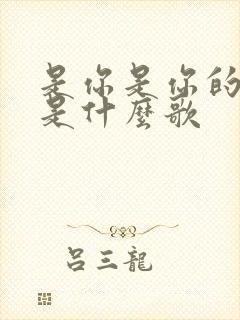 是你是你的
是什麼歌
呂三龍